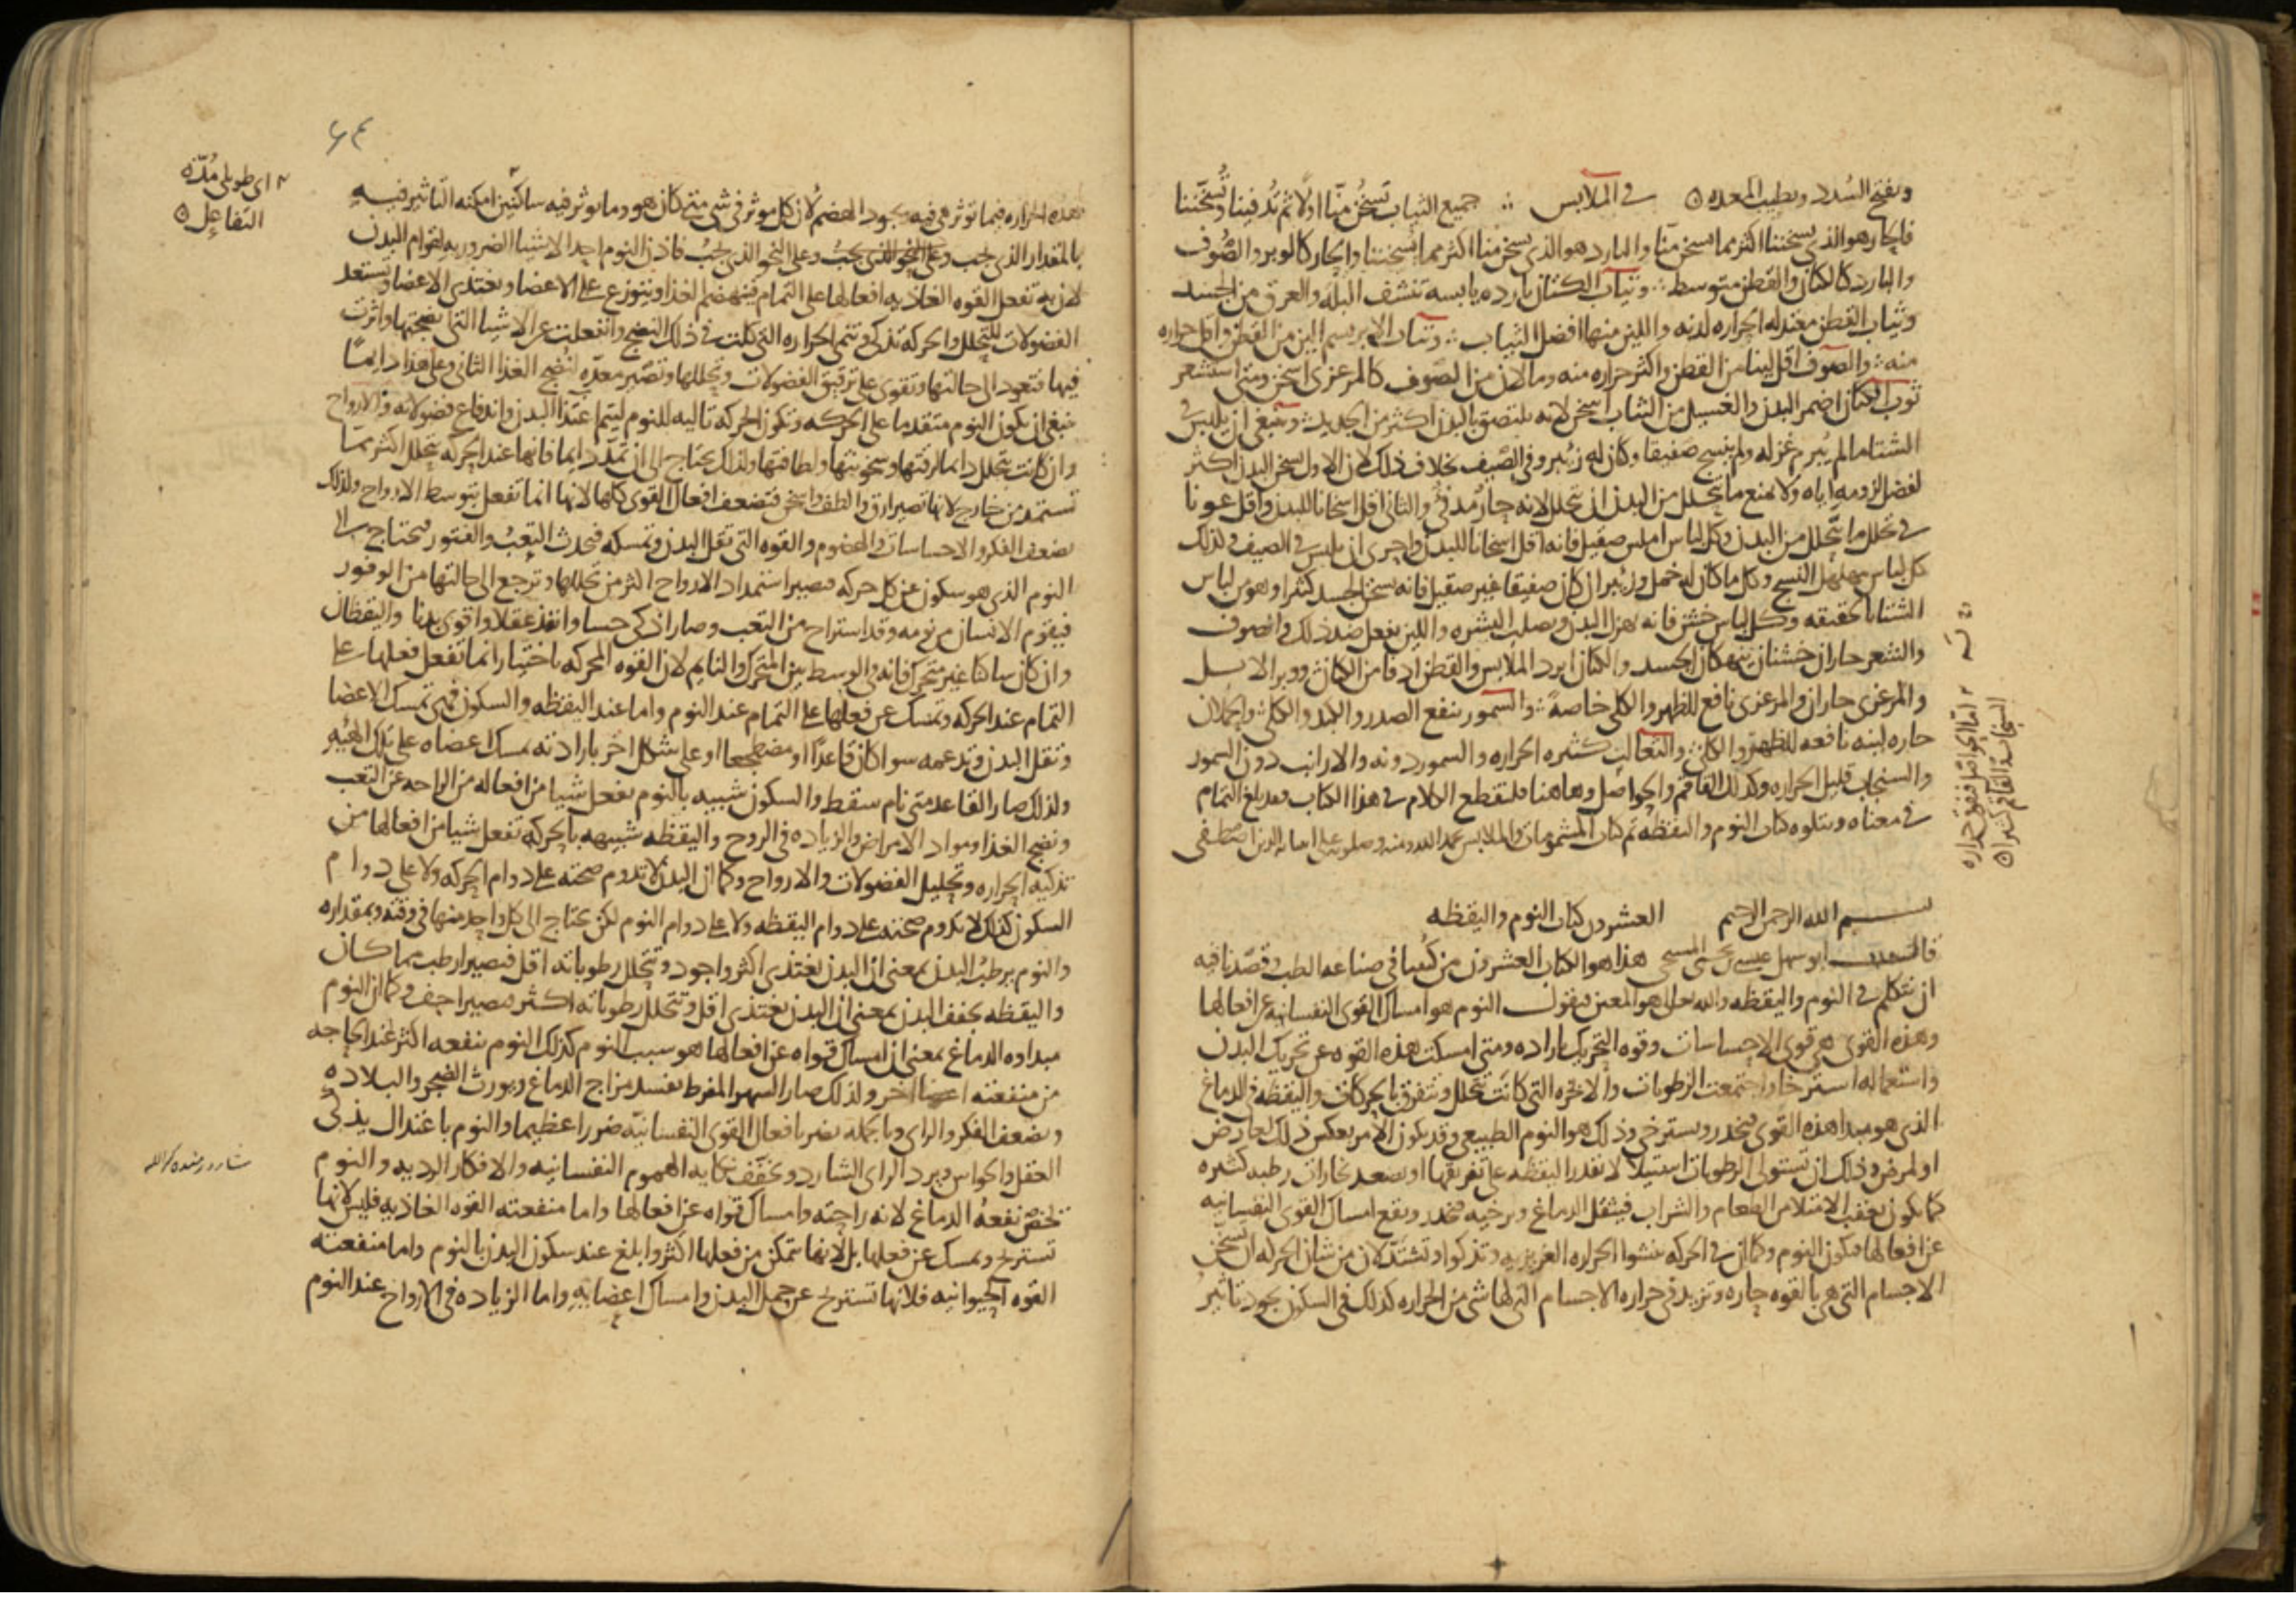 ويفتح السدد ويطيب المعده في الملابس جميع الثياب تسخن منا اولا ثم تدفينا وتسخننا
فالحار هو الذي يسخننا اكثر مما يسخن منا والبارد هو الذي يسخن منا اكثر مما يسخننا والحار كالوبر والصوف
والبارد كالكتان والقطن متوسط وثياب الكتان بارده يابسه تنشف البله والعرق من الجسد
وثياب القطن معتدله الحراره لدنه واللين منها افضل الثياب وثياب الابريسم الين من القطن واقل حراره
منه والصوف اقل لينا من القطن واكثر حراره منه وما لان من الصوف كالمرعزى اسخن ومتى استشعر
ثوب الكتان اضمر البدن والغسيل من الثياب اسخن لانه يلتصق بالبدن اكثر من الجديد وينبغي ان يلبس في
الشتا ما لم يبرم غزله ولم ينسج صفيقا وكان له زئبر وفي الصيف بخلاف ذلك لان الاول يسخن البدن اكثر
لفضل لزومه اياه ولا يمنع ما يتحلل من البدن ان يتحلل لانه حار مدفئ والثاني اقل اسخانا للبدن واقل عونا
في تحلل ما يتحلل من البدن وكل لباس املس صقيل فانه اقل اسخانا للبدن واحرى ان يلبس في الصيف وكذلك
كل لباس مهلهل النسج وكل ما كان له خمل وزئبر ان كان صفيقا غير صقيل فانه يسخن الجسد كثيرا وهو من لباس
الشتا بالحقيقه وكل لباس خشن فانه يهزل البدن ويصلب البشره واللين يفعل ضد ذلك والصوف
والشعر حاران خشنان ينهكان الجسد والكتان ابرد الملابس والقطن ادفا من الكتان ووبر الابل
والمرعزى حاران والمرعزى نافع للظهر والكلى خاصة والسمور ينفع الصدر والكبد والكلى والحملان
حاره لينه نافعه للظهر والكلى والثعالب كثيره الحراره والسمور دونه والارانب دون السمور
والسنجاب قليل الحراره وكذلك القاقم والحواصل وهاهنا فلنقطع الكلام في هذا الكتاب فقد بلغ التمام
في معناه ويتلوه كتاب النوم واليقظه تم كتاب المشمومات والملابس بحمد الله ومنه وصلوته على عباده الذين اصطفى
اما الحواصل ففوق حراره
السنجاب والقاقم كثيرا
بسم الله الرحمن الرحيم العشرون كتاب النوم واليقظه
قال ابو سهل عيسى بن يحيى المسيحي هذا هو الكتاب العشرون من كتبنا في صناعه الطب وقصدنا فيه
ان نتكلم في النوم واليقظه والله تعالى هو المعين فنقول النوم هو امساك القوى النفسانيه عن افعالها
وهذه القوى هي قوى الاحساسات وقوه التحريك باراده ومتى امسكت هذه القوه عن تحريك البدن
واستعماله استرخا واجتمعت الرطوبات والابخره التي كانت تتحلل وتتفرق بالحركات واليقظه في الدماغ
الذي هو مبدا هذه القوى فيخدر ويسترخي وذلك هو النوم الطبيعي وقد يكون الامر بعكس ذلك لعارض
او لمرض وذلك ان تستولي الرطوبات استيلا لا تقدر اليقظه على تفريقها او يصعد بخارات رطبه كثيره
كما يكون بعقب الامتلا من الطعام والشراب فيثقل الدماغ ويرخيه فيخدر ويقع امساك القوى النفسانيه
عن افعالها فيكون النوم وكما ان في الحركه تنشوا الحراره الغريزيه وتذكوا وتشتد لان من شان الحركه ان تسخن
الاجسام التي هي بالقوه حاره وتزيد في حراره الاجسام التي لها شي من الحراره كذلك في السكون يجود تاثير
اي طويل مدة
التفاعل
هذه الحراره فيما توثر هي فيه بجود الهضم لان كل موثر في شي متى كان هو وما يوثر فيه ساكنين امكنه التاثير فيه
بالمقدار الذي يجب وعلى النحو الذي يجب فاذن النوم احد الاشيا الضروريه لقوام البدن
لان به تفعل القوه الغاذيه افعالها على التمام فينهضم الغذا ويتوزع على الاعضا ويغتذي الاعضا ويستعد
الفضولات للتحلل والحركه تذكي وتنمي الحراره التي كلت في ذلك النضج وانفعلت عن الاشيا التي نضجتها واثرت
فيها فتعود الى حالتها وتقوى على ترقيق الفضولات وتحللها وتصير معده لنضج الغذا الثاني وعلى هذا دايما
ينبغي ان يكون النوم متقدما على الحركه وتكون الحركه تاليه للنوم ليتم اغتذا البدن واندفاع فضولاته والارواح
وان كانت تتحلل دايما لرقتها وسخونتها ولطافتها ولذلك يحتاج الى ان تمد دايما فانها عند الحركه يتحلل اكثر مما
تستمد من خارج لانها تصير ارق والطف واسخن فتضعف افعال القوى كلها لانها انما تفعل بتوسط الارواح ولذلك
يضعف الفكر والاحساسات والهضوم والقوه التي تقل البدن وتمسكه فيحدث التعب والفتور فيحتاج الى
النوم الذي هو سكون عن كل حركه فيصير استمداد الارواح اكثر من تحللها وترجع الى حالتها من الوفور
فيقوم الانسان من نومه وقد استراح من التعب وصار اذكى حسا وانفذ عقلا واقوى بدنا واليقظان
وان كان ساكنا غير متحرك فانه في الوسط بين المتحرك والنايم لان القوه المحركه باختيار انما تفعل فعلها على
التمام عند الحركه وتمسك عن فعلها على التمام عند النوم واما عند اليقظه والسكون فهي تمسك الاعضا
وتقل البدن وتدعمه سوا كان قاعدا او مضطجعا او على شكل اخر بارادته يمسك اعضاه على تلك الهيه
ولذلك صار القاعد متى نام سقط والسكون شبيه بالنوم يفعل شيا من افعاله من الراحه عن التعب
ونضج الغذا ومواد الامراض والزياده في الروح واليقظه شبيهه بالحركه تفعل شيا من افعالها من
تذكيه الحراره وتحليل الفضولات والارواح وكما ان البدن لا تدوم صحته على دوام الحركه ولا على دوام
السكون كذلك لا تدوم صحته على دوام اليقظه ولا على دوام النوم لكن يحتاج الى كل واحد منها في وقته وبمقداره
والنوم يرطب البدن بمعنى ان البدن يغتذي اكثر واجود وتتحلل رطوباته اقل فيصير ارطب مما كان
واليقظه يجفف البدن بمعنى ان البدن يغتذي اقل وتتحلل رطوباته اكثر فيصير اجف وكما ان النوم
مبداوه الدماغ بمعنى ان امساك قواه عن افعالها هو سبب النوم كذلك النوم ينفعه اكثر عند الحاجه
من منفعته اعضا اخر ولذلك صار السهر المفرط يفسد مزاج الدماغ ويورث الضجر والبلاده
ويضعف الفكر والراي وبالجمله يضر بافعال القوى النفسانيه ضررا عظيما والنوم باعتدال يذكي
العقل والحواس ويرد الراي الشارد ويخفف نكايه الهموم النفسانيه والافكار الرديه والنوم
يخص نفعه الدماغ لانه راحته وامساك قواه عن افعالها واما منفعته القوه الغاذيه فليس لانها
تستريح وتمسك عن فعلها بل لانها تتمكن من فعلها اكثر وابلغ عند سكون البدن بالنوم واما منفعته
القوه الحيوانيه فلانها تستريح عن حمل البدن وامساك اعضايه واما الزياده في الارواح عند النوم